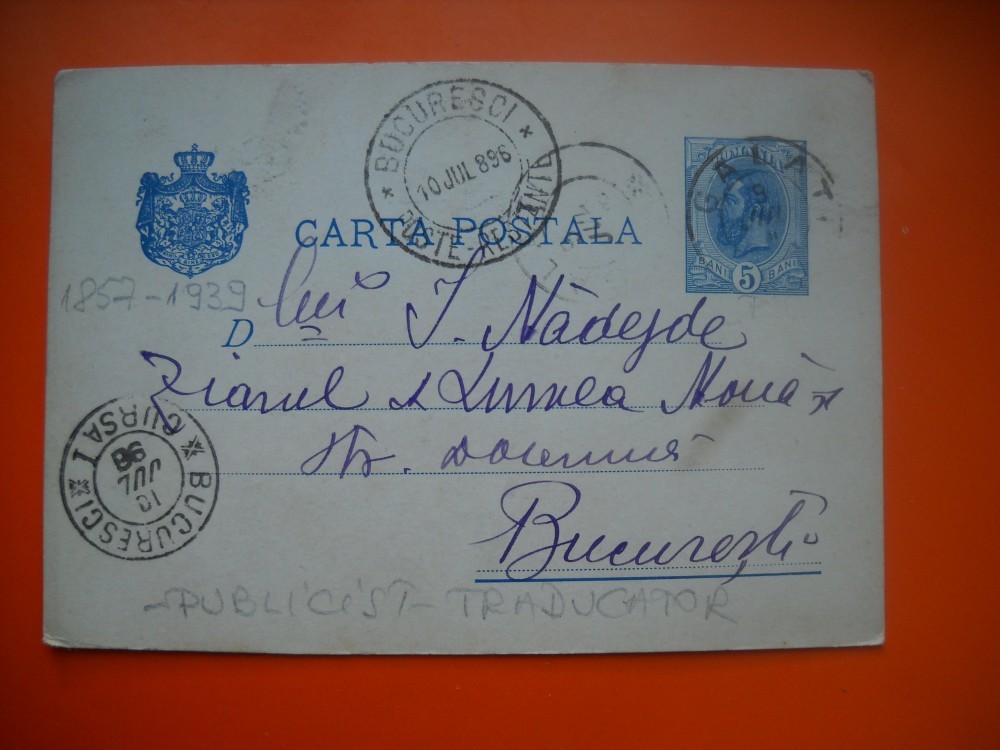 * BUCURESCI *
10 JUL 896
POSTE-RESTANTA
ROMANIA
GALAT
CARTA POSTALA
BANI 5 BANI
1857-1939
D lui I. Nădejde
Ziarul « Lumea Nouă »
Str. Doamnei
* CURSA 1 *
10 JUL 96
BUCURESCI
Bucureşti
-PUBLICIST- TRADUCATOR